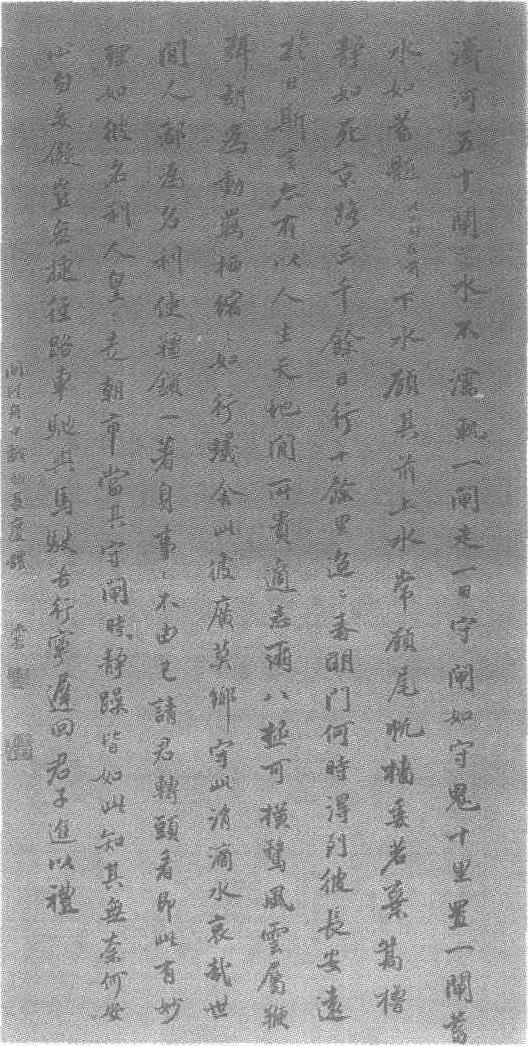 濟河五十閘閘水不濡軌一閘走一日守閘如守鬼十里置一閘蓄
水如蓄髓下水顧其前上水常顧尾帆檣委若棄篙櫓
靜如死京路三千餘日行十餘里迢迢春明門何時得到彼長安遠
於日斯言亦有以人生天地間所貴適志爾八極可橫騖風雲屬鞭
弭胡為動羈栖縮縮如行螘舍此彼廣莫鄉守此涓滴水哀哉世
間人都為名利使韁鎖一著身事事不由己請君轉頭看即此有妙
理如彼名利人皇皇走朝市當其守閘時靜躁皆如此知其無奈何安
心勿妄儗豈無捷徑路車馳與馬駛吾行寧遲回君子進以禮
閘河舟中戲效長慶體